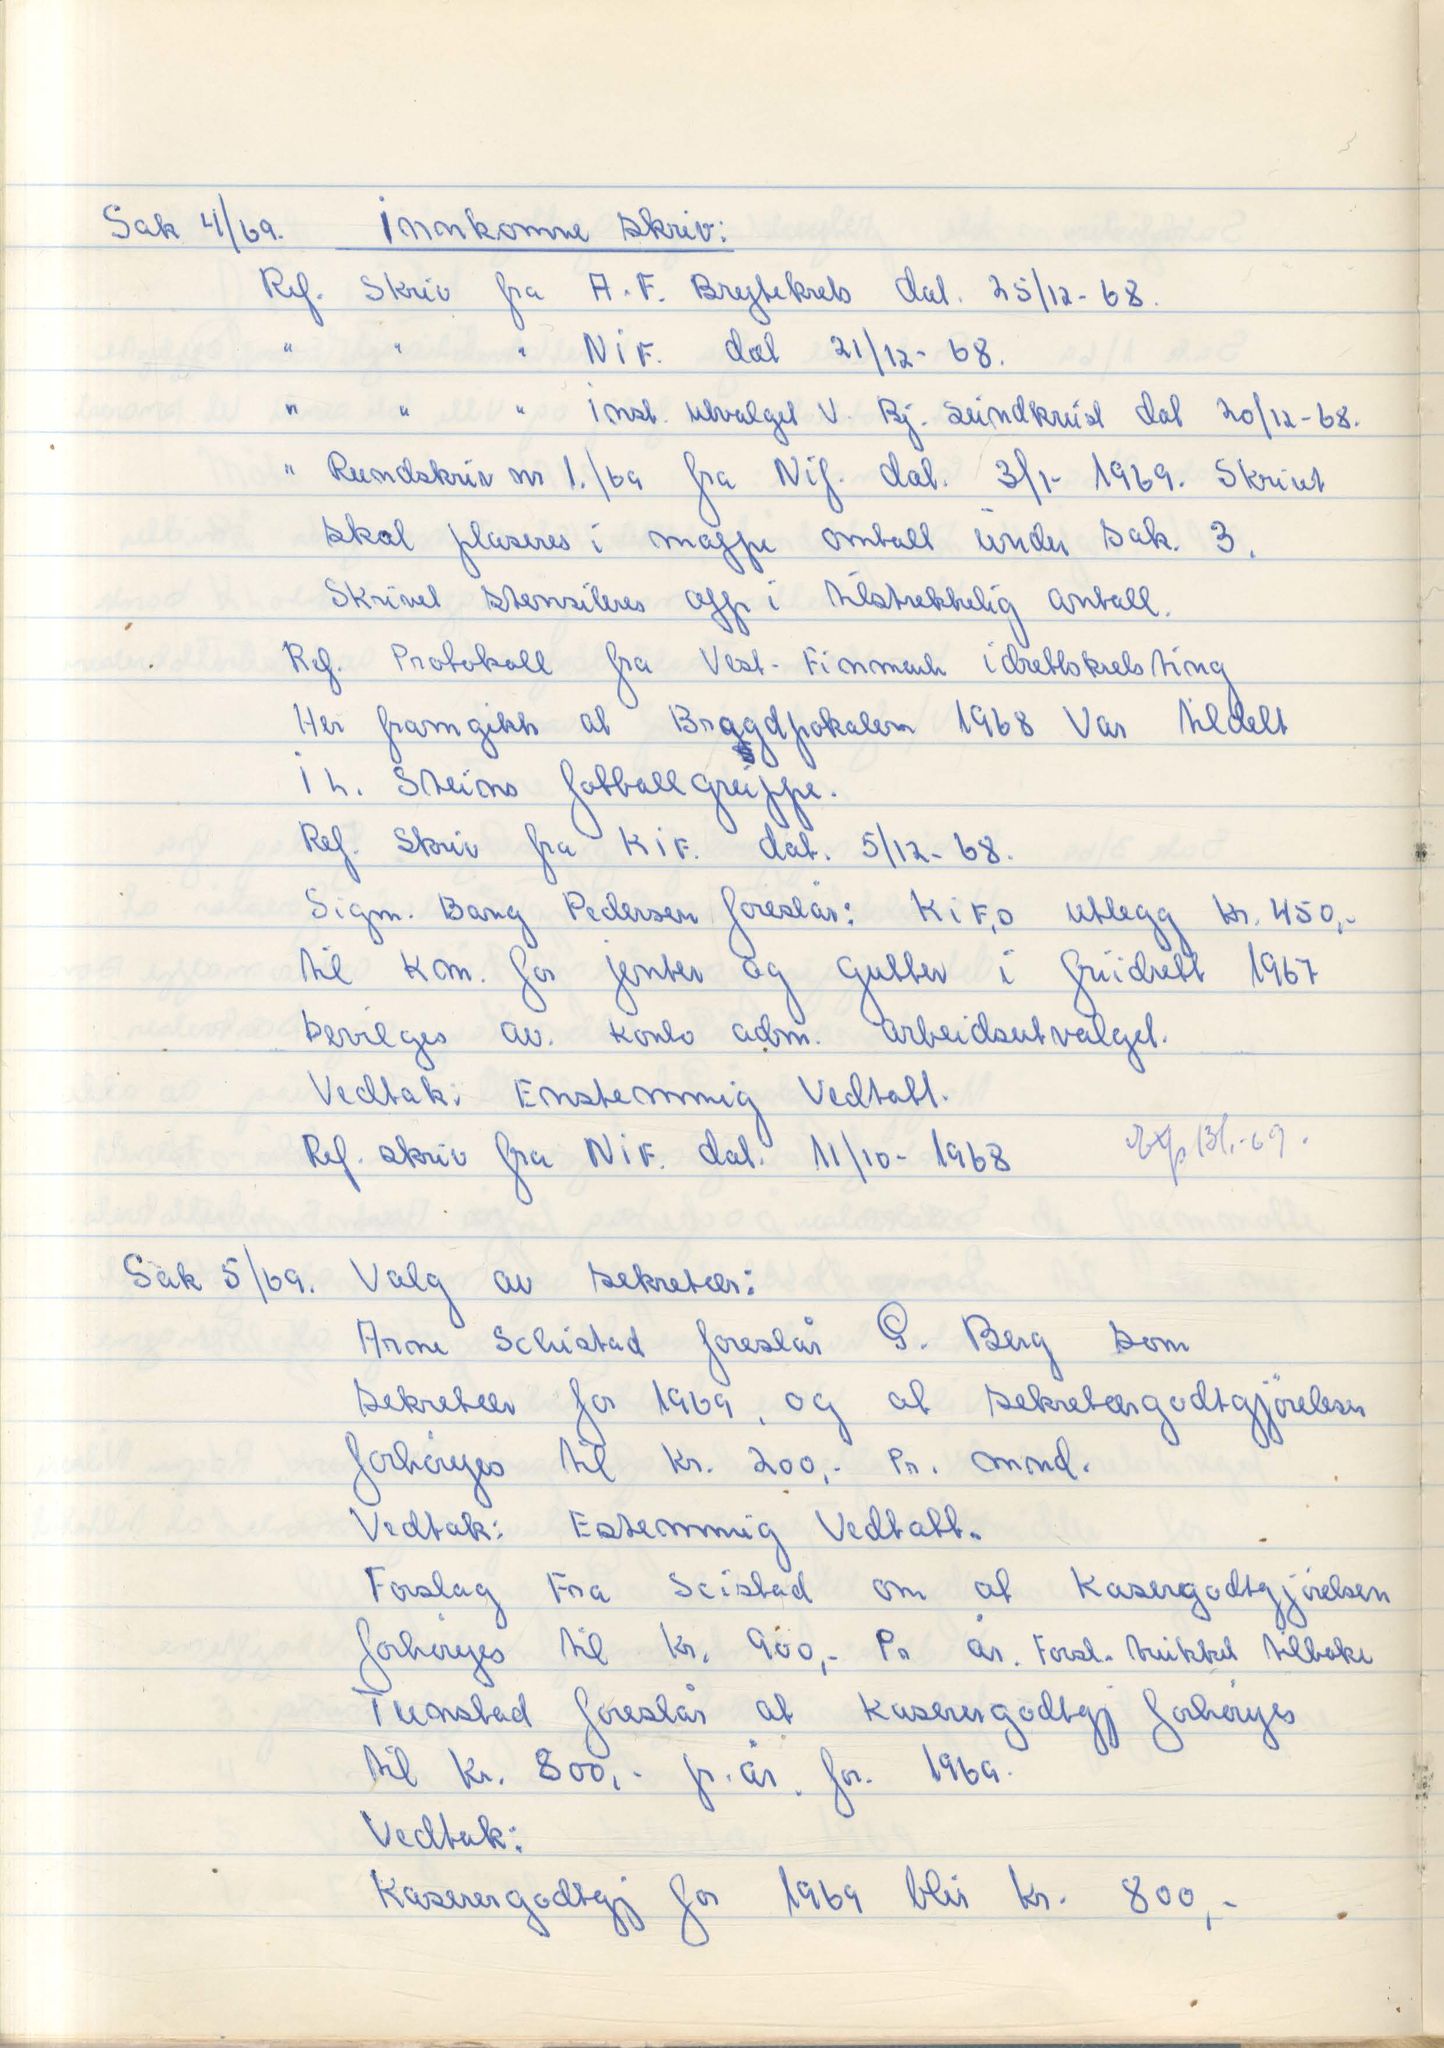 Sak 4/69. Innkomne skriv:
Ref. Skriv fra A.F. Brytekrets dat. 25/12-68.
" " " NIF. dat 21/12-68.
" " " inst. utvalget v. Bj. Sundkvist dat 20/12-68.
" Rundskriv nr 1./69 fra Nif. dat. 3/1- 1969. Skrivet
skal plaseres i mappe omtalt under sak. 3.
Skrivet stensileres opp i tilstrekkelig antall.
Ref. Protokoll fra Vest-Finnmark idrettskrets ting
Her framgikk at Bragdpokalen 1968 Var tildelt
I L. Steins fotballgruppe.
Ref. Skriv fra KIF. dat. 5/12-68.
Sigm. Bang Pedersen foreslår: KIF,s utlegg kr. 450,-
til Km. for jenter og gutter i friidrett 1967
bevilges av. konto adm. arbeidsutvalget.
Vedtak: Enstemmig Vedtatt.
Ref. skriv fra NIF. dat. 11/10-1968 Exp 13/1.-69.
Sak 5/69. Valg av sekretær:
Arne Schistad foreslår G. Berg som
sekretær for 1969, og at sekretærgodtgjörelsen
forhöyes til kr. 200,- Pr. mnd.
Vedtak: Estemmig Vedtatt.
Forslag Fra Scistad om at Kasergodtgjörelsen
forhöyes til kr. 900,- Pr år. Forsl. trukket tilbake
Tunstad foreslår at Kaserergodtgj forhöyes
til kr. 800,- pr. år. for. 1969.
Vedtak:
Kaserergodtgj for 1969 blir kr. 800,-